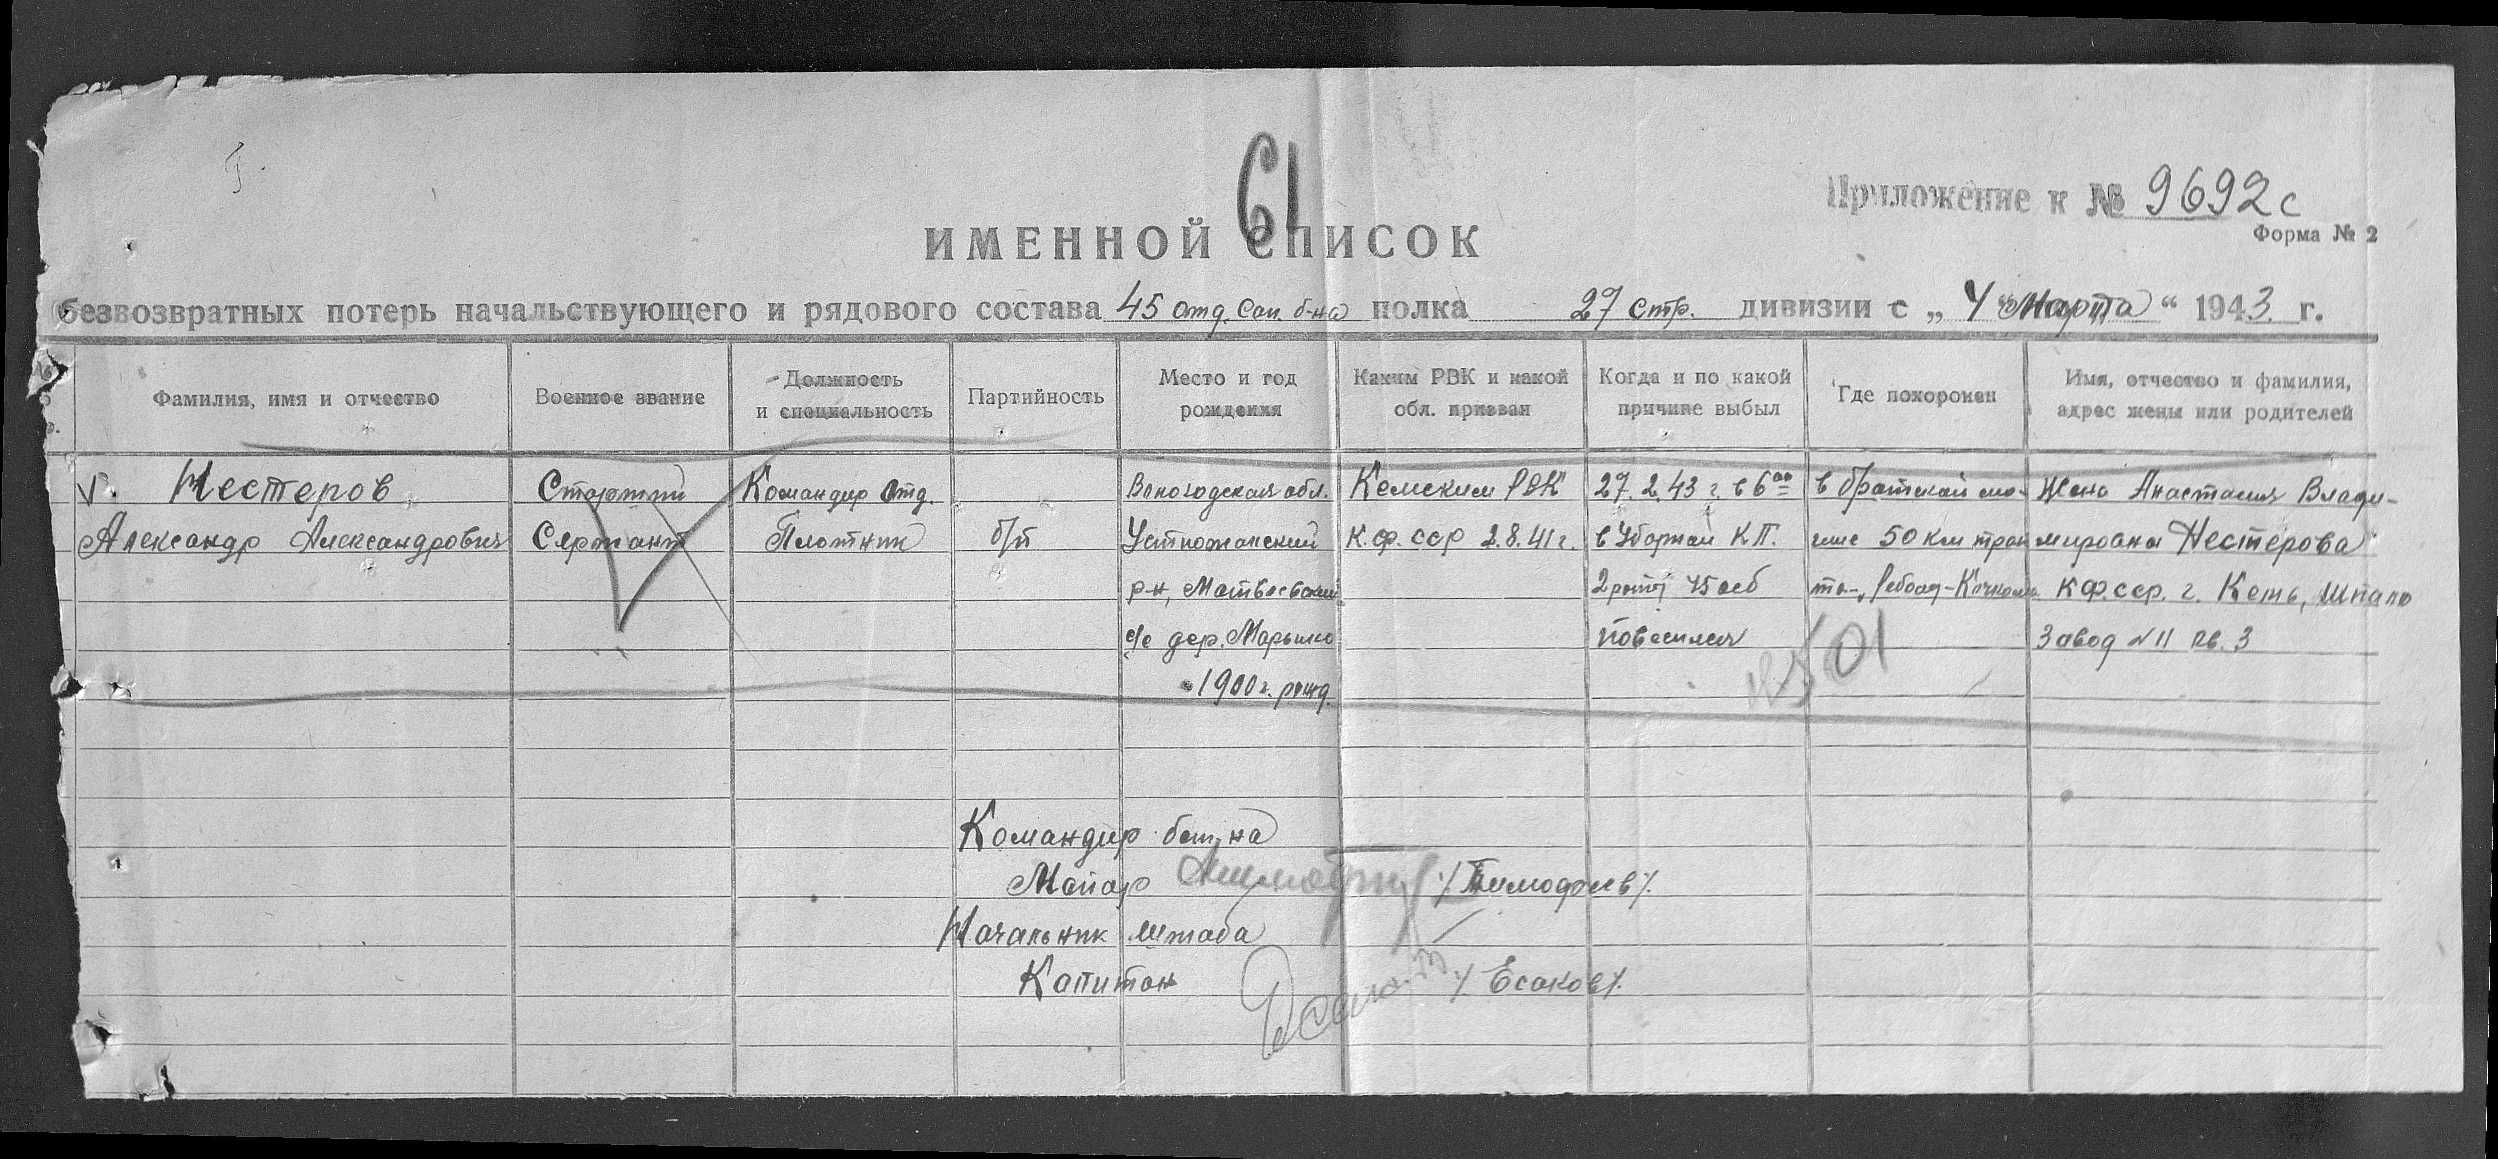 61
Приложение к № 9692с
Форма № 2
ИМЕННОЙ СПИСОК
безвозвратных потерь начальствующего и рядового состава 45 отд. сап. б-на полка 27 стр. дивизии с „ 4 " марта “ 1943 г.
Фамилия, имя и отчество
Военное звание
Должность
и специальность
Партийность
Место и год
рождения
Каким РВК и какой
обл. призван
Когда и по какой
причине выбыл
Где похоронен
Имя, отчество и фамилия,
адрес жены или родителей
V. Нестеров
Александр Александрович
Старший
Сержант
Командир отд.
Плотник
б/п
Вологодская обл.
Устюженский
р-н, Матвеевский
с/с дер. Марьино
1900 г. рожд.
Кемским РВК
К.Ф.ССР 2.8.41 г.
27.2.43 г. в 6 00
в Уборной КП.
2 роты 45 осб
повесился
в братской мо-
гиле 50 км трак
та-, Реболы-Кочкома
Жена Анастасия Влади-
мировна Нестерова
КФ.ССР. г. Кемь, Шпало
Завод № 11 кв. 3
Командир бат-на
Майор /Тимофеев/.
Начальник Штаба
Капитан /Есаков/.